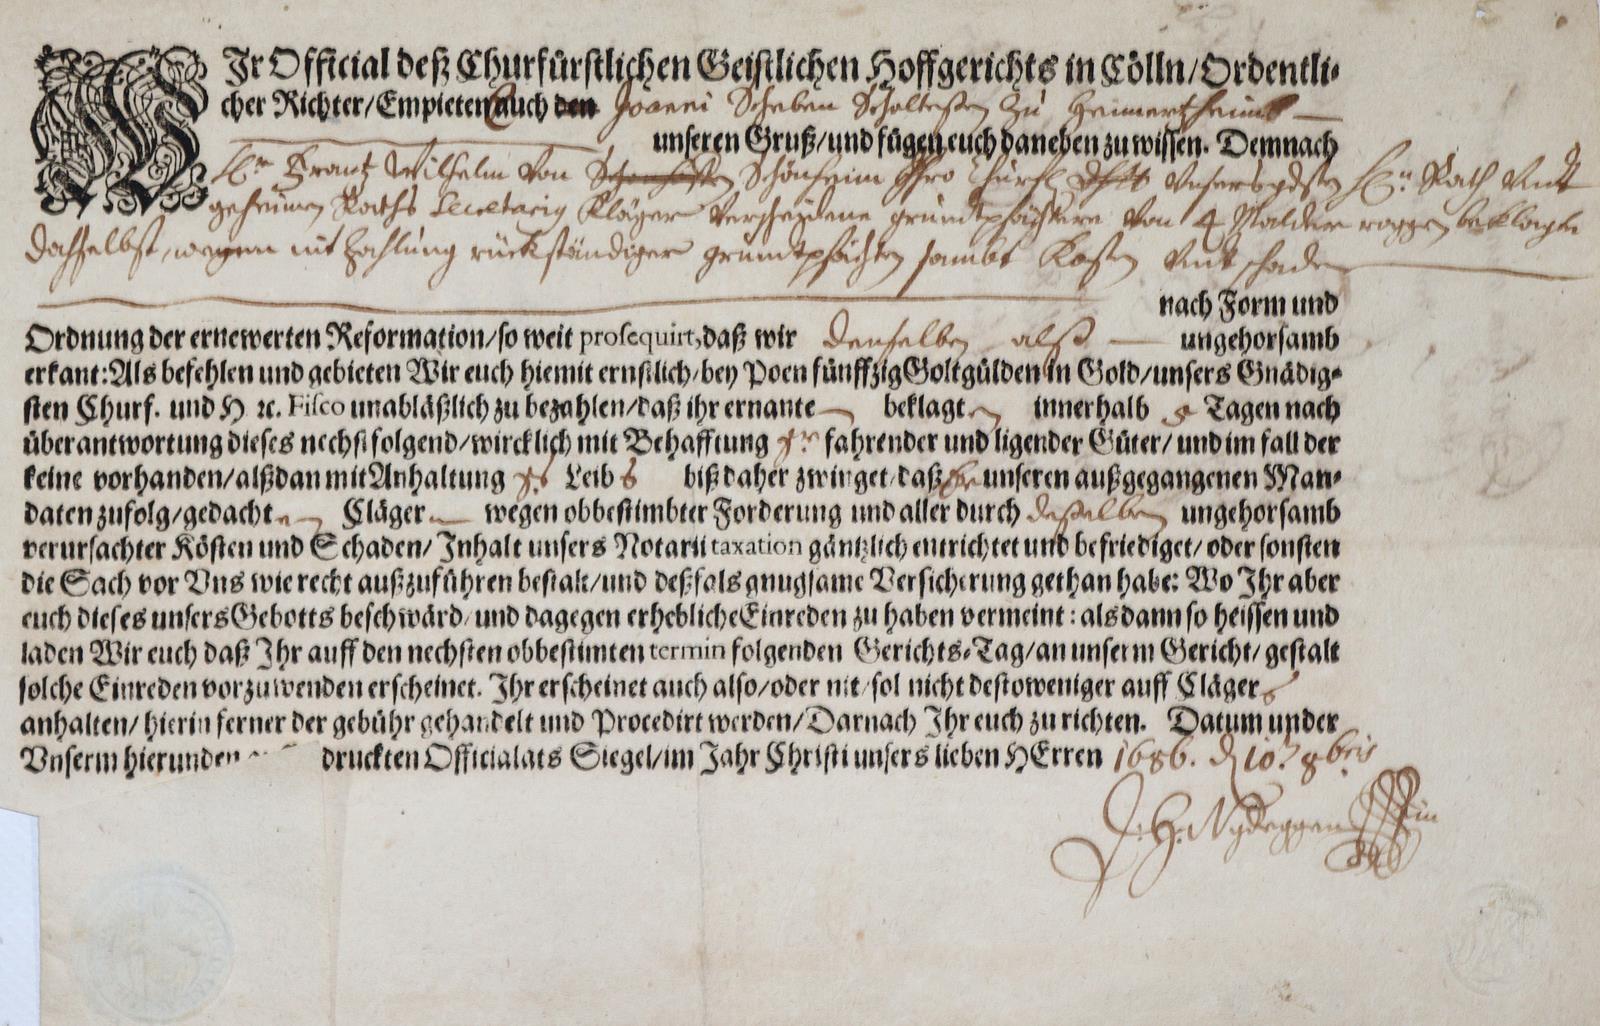 WIr Official deß Churfürstlichen Geistlichen Hoffgerichts in Cölln/Ordentli-
cher Richter/Empieten Euch Joanni Scheben Scholteßen zu Heimertzheimb
unseren Gruß/und fügen euch daneben zu wissen. Demnach
Hrn Frantz Wilhelm von Schönheim Ihro Churfl Unsers gdsten Hrn Rath undt
geheimen Raths Secretarig Kläger verscheidene grundtpfächtere von 4 Malder roggen beklagte
daßelbst, wegen nit Zahlung rückständiger grundtpfächten sambt Kosten undt schaden
nach Form und
Ordnung der ernewerten Reformation/so weit prosequirt, daß wir denselben alß ungehorsamb
erkant: Als befehlen und gebieten Wir euch hiemit ernstlich/bey Poen fünffzig Goltgülden in Gold/unsers Gnädig-
sten Churf. und H ꝛc. Fisco unabläßlich zu bezahlen/daß ihr ernanten beklagten innerhalb 8 Tagen nach
überantwortung dieses nechst folgend/wircklich mit Behafftung fahrender und ligender Güter/und im fall der
keine vorhanden/alßdan mit Anhaltung Leibs biß daher zwinget/daß unseren außgegangenen Man-
daten zufolg/gedachten Cläger wegen obbestimbter Forderung und aller durch deßelben ungehorsamb
verursachter Kösten und Schaden/Inhalt unsers Notarii taxation gäntzlich entrichtet und befriediget/oder sonsten
die Sach vor Uns wie recht außzuführen bestalt/und deßfals gnugsame Versicherung gethan habe: Wo Ihr aber
euch dieses unsers Gebotts beschwärd/und dagegen erhebliche Einreden zu haben vermeint: als dann so heissen und
laden Wir euch daß Ihr auff den nechsten obbestimten termin folgenden Gerichts-Tag/an unserm Gericht/gestalt
solche Einreden vorzuwenden erscheinet. Ihr erscheinet auch also/oder nit/sol nicht destoweniger auff Clägers
anhalten/hierin ferner der gebühr gehandelt und Procedirt werden/Darnach Ihr euch zu richten. Datum under
Unserm hierunden druckten Officialats Siegel/im Jahr Christi unsers lieben HErren 1686. d 10t 8bris
J. H. Nydeggen